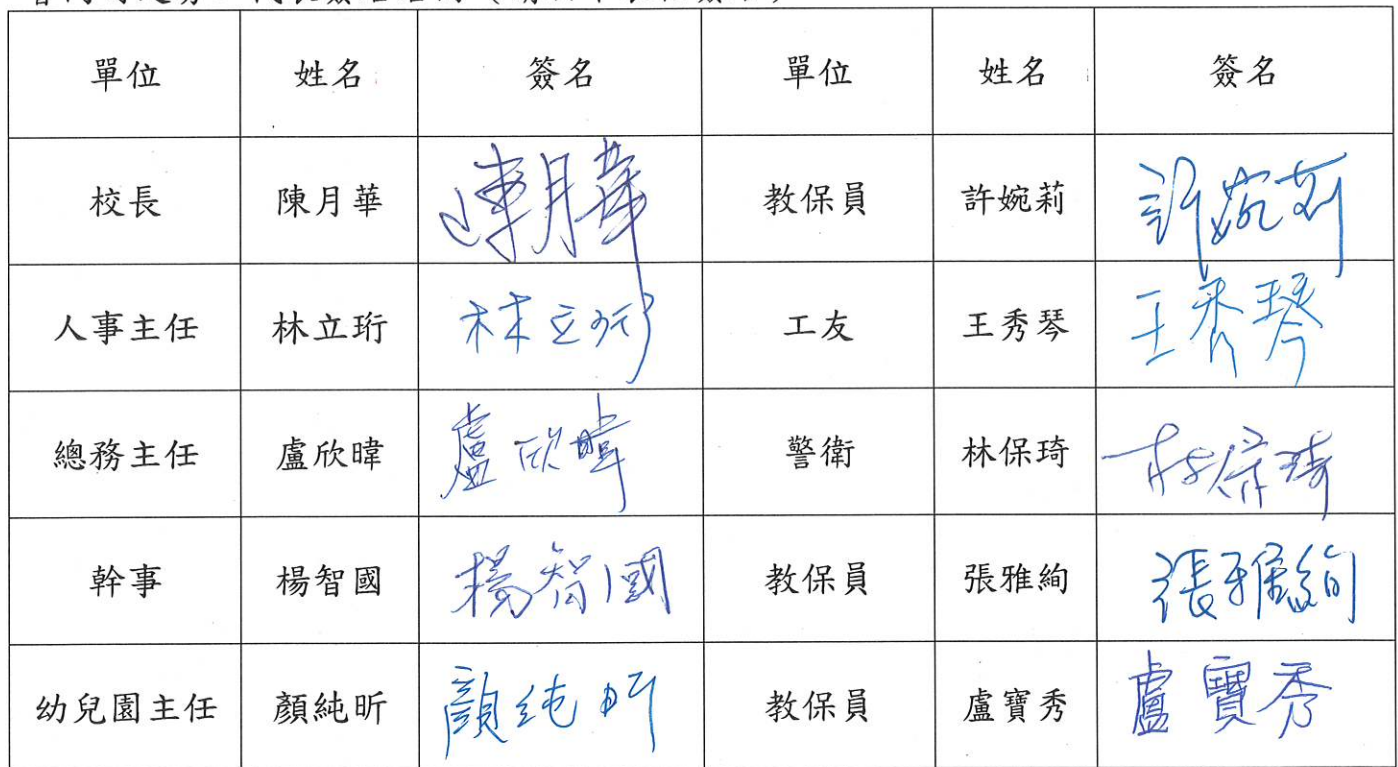 單位 姓名 簽名 單位 姓名 簽名
校長 陳月華 陳月華 教保員 許婉莉 許婉莉
人事主任 林立珩 林立珩 工友 王秀琴 王秀琴
總務主任 盧欣暐 盧欣暐 警衛 林保琦 林保琦
幹事 楊智國 楊智國 教保員 張雅絢 張雅絢
幼兒園主任 顏純昕 顏純昕 教保員 盧寶秀 盧寶秀